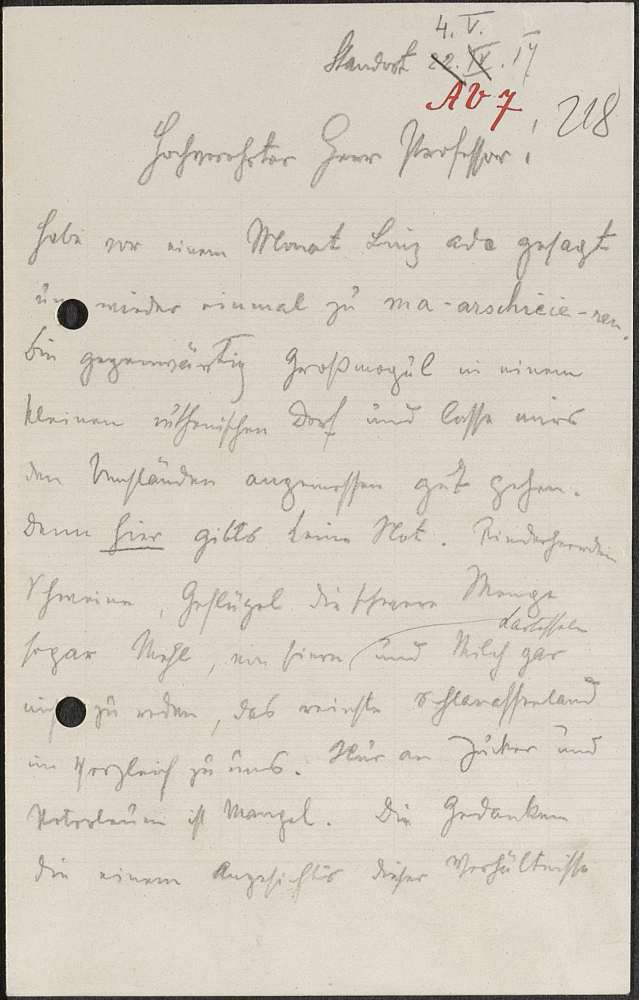 4. V.
Standort 22. IV. 17
AV 7
218
Hochverehrter Herr Professor!
Habe vor einem Monat Linz ade gesagt
um wieder einmal zu ma-arschieie-ren.
Bin gegenwärtig Großmogul in einem
kleinen ruthenischen Dorf und lasse mirs
den Umständen angemessen gut gehen.
Denn hier gibts keine Not. Rinderheerden
Schweine, Geflügel die schwere Menge
sogar Mehl, von Eiern und Milch gar
Kartoffeln
nicht zu reden, das reinste Schlaraffenland
im Vergleich zu uns. Nur an Zucker und
Petroleum ist Mangel. Die Gedanken
die einem Angesichts dieser Verhältnisse